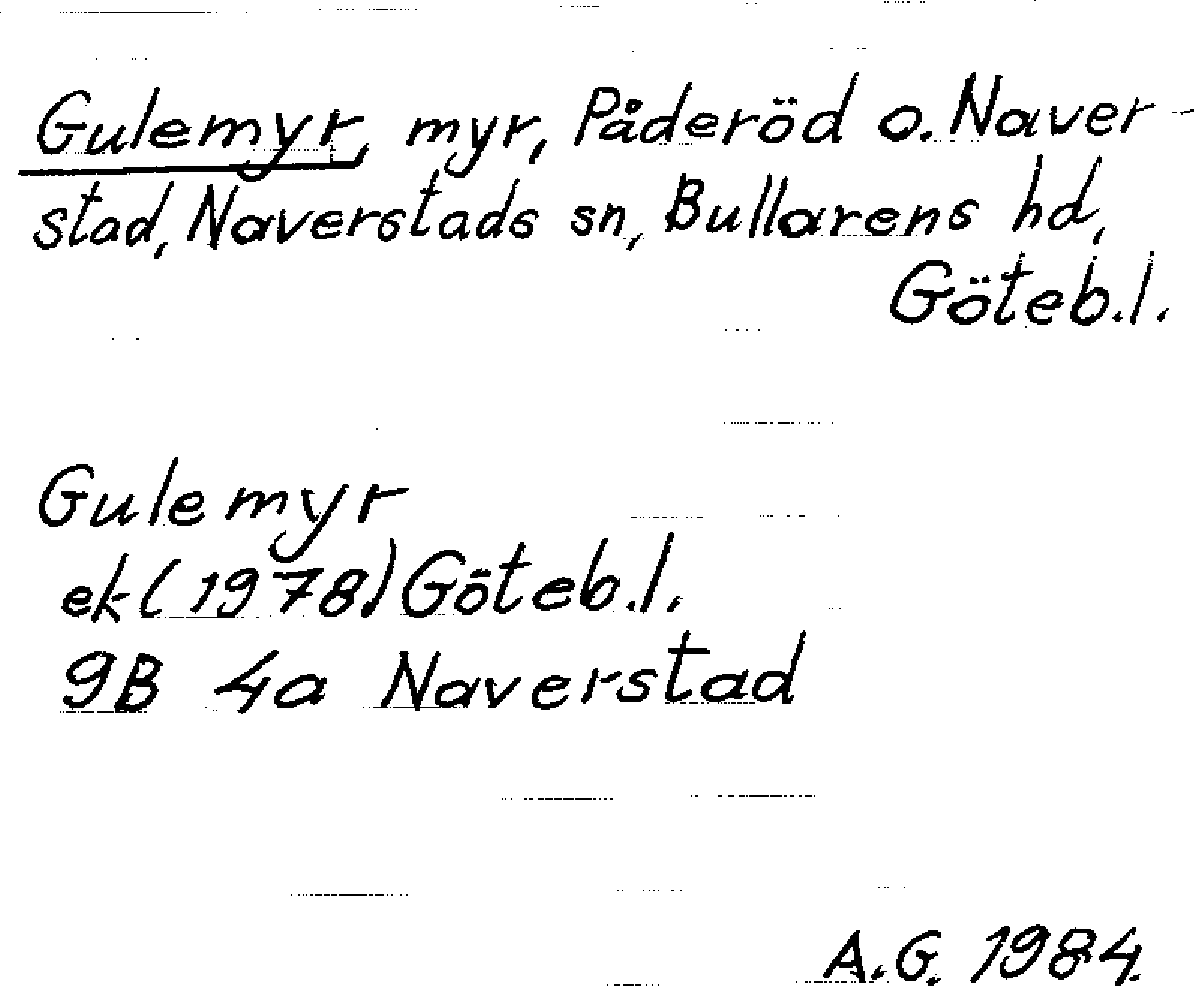 Gulemyr, myr, Påderöd o. Naver-
stad, Naverstads sn, Bullarens hd,
Göteb.l.
Gulemyr
ek (1978) Göteb.l.
9B 4a Naverstad
A.G. 1984.